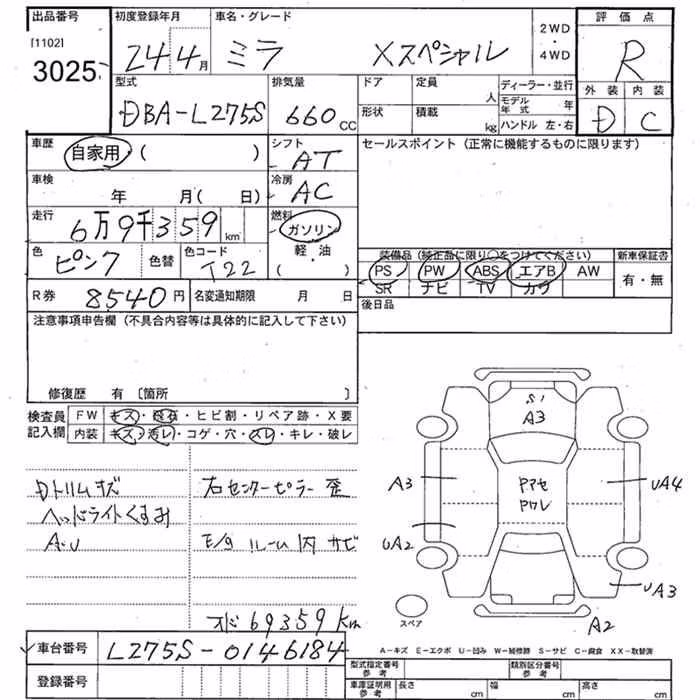 出品番号 初度登録年月 車名・グレード 評価点
[1102] 3025 24 4月 ミラ Xスペシャル 2WD・4WD R
型式 排気量 ドア 定員 人 ディーラー・並行 外装 内装
DBA-L275S 660cc 形状 積載 kg モデル年式 年 ハンドル 左・右 D C
車歴 自家用 ( ) シフト AT セールスポイント (正常に機能するものに限ります)
車検 年 月( 日) 冷房 AC
走行 6万9千359km 燃料 ガソリン・軽油 ( )
色 ピンク 色替 色コード T22
装備品 (純正品に限り○をつけてください) 新車保証書
PS PW ABS エアB AW 有・無
SR ナビ TV カワ
R券 8540円 名変通知期限 月 日 後日品
注意事項申告欄 (不具合内容等は具体的に記入して下さい)
修復歴 有 〔箇所 〕
検査員記入欄 FW キズ・飛石・ヒビ割・リペア跡・X要
内装 キズ・汚レ・コゲ・穴・スレ・キレ・破レ
Dトリムキズ 右センターピラー歪
ヘッドライトくすみ
A・U E/gルーム内サビ
オド69359km
S1
A3
A3 PアセPワレ UA4
UA2
UA3
A2
スペア
A-キズ E-エクボ U-凹み W-補修跡 S-サビ C-腐食 XX-取替済
車台番号 L275S-0146184
型式指定番号 参考 類別区分番号 参考
登録番号 車庫証明用 参考 長さ cm 幅 cm 高さ cm